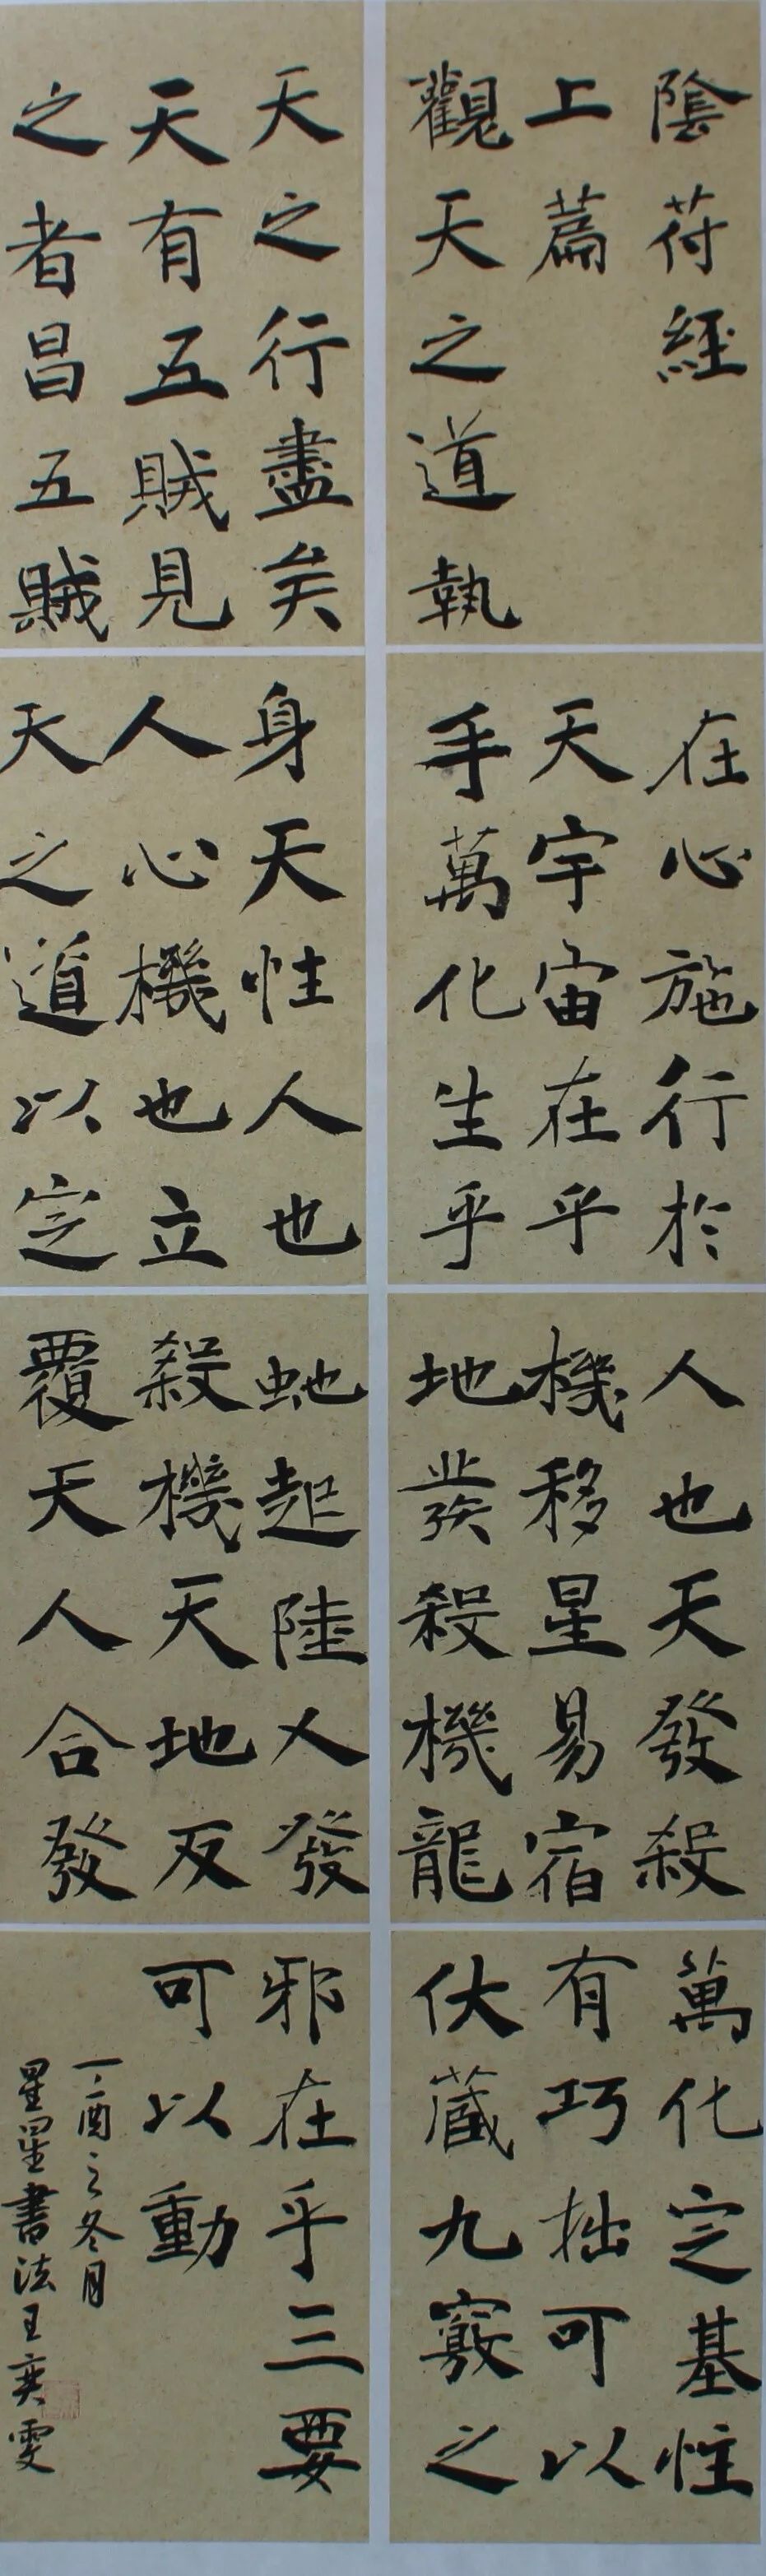 陰符經
上篇
觀天之道執
天之行盡矣
天有五賊見
之者昌五賊
在心施行於
天宇宙在乎
手萬化生乎
身天性人也
人心機也立
天之道以定
人也天發殺
機移星易宿
地發殺機龍
虵起陸人發
殺機天地反
覆天人合發
萬化定基性
有巧拙可以
伏藏九竅之
邪在乎三要
可以動
丁酉之冬月
星星書法王奕雯